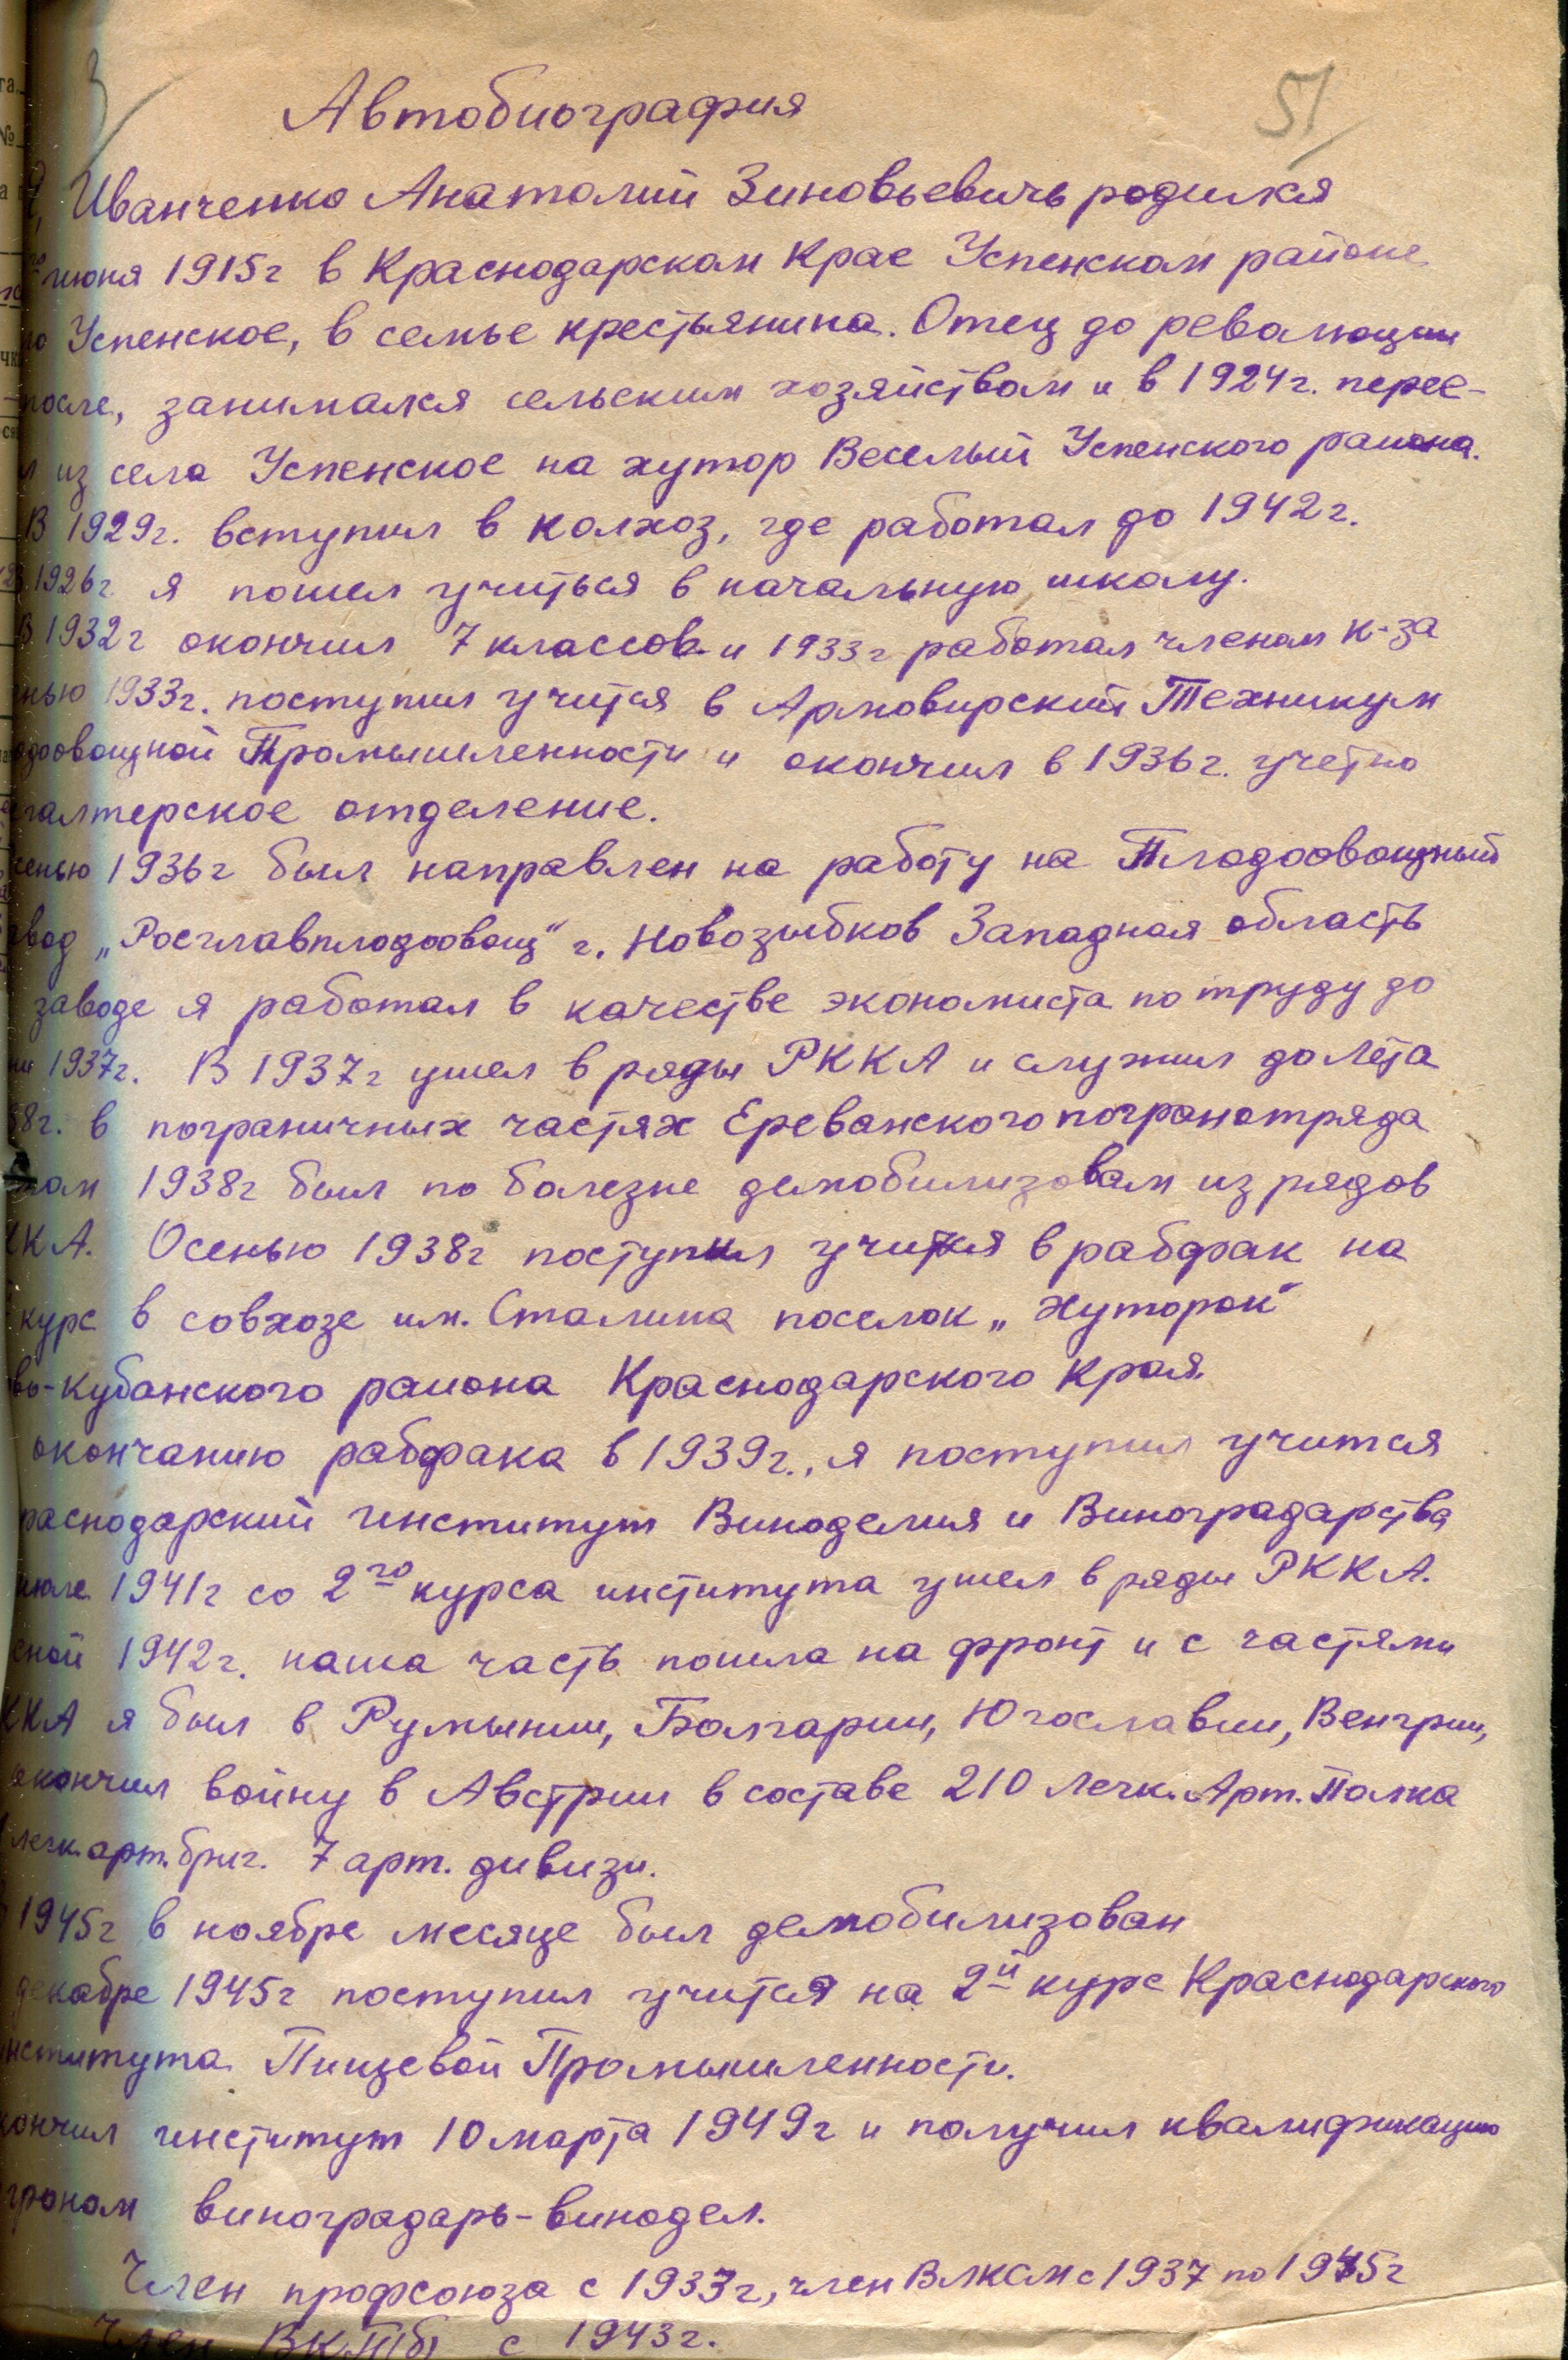 51
Автобиография
Иванченко Анатолий Зиновьевичь родился
июня 1915г в Краснодарском Крае Успенском районе
Успенское, в семье крестьянина. Отец до революции
после, занимался сельским хозяйством и в 1924г. перее-
из села Успенское на хутор Веселый Успенского района.
В 1929г. вступил в колхоз, где работал до 1942г.
1926г я пошел учиться в начальную школу.
В 1932г окончил 7 классов и 1933г работал членом к-за
нью 1933г. поступил учится в Армовирский Техникум
одоовощной Промышленности и окончил в 1936г. учетно
галтерское отделение.
сенью 1936г был направлен на работу на Плодоовощный
вод „Росглавплодоовощ" г. Новозыбков Западная область
заводе я работал в качестве экономиста по труду до
ни 1937г. В 1937г ушел в ряды РККА и служил до Лета
8г. в пограничных частях Ереванского погранотряда
том 1938г был по болезне демобилизовам из рядов
ККА. Осенью 1938г поступил учится в рабфак на
курс в совхозе им. Сталина поселок „Хуторок"
во-Кубанского района Краснодарского Края.
окончанию рабфака в 1939г., я поступил учится
раснодарский институт Виноделия и Виноградарства
июле 1941г со 2го курса института ушел в ряды РККА.
сной 1942г. наша часть пошла на фронт и с частями
ККА я был в Румынии, Болгарии, Югославии, Венгрии,
окончил войну в Австрии в составе 210 Легк. Арт. Полка
легк. арт. бриг. 7 арт. дивизи.
1945г в ноябре месяце был демобилизован
декабре 1945г поступил учится на 2й курс Краснодарского
института Пищевой Промышленности.
кончил институт 10 марта 1949г и получил квалификацию
гроном виноградарь-винодел.
Член профсоюза с 1933г, член Влксм с 1937 по 1945г
Член ВКП(б) с 1943г.